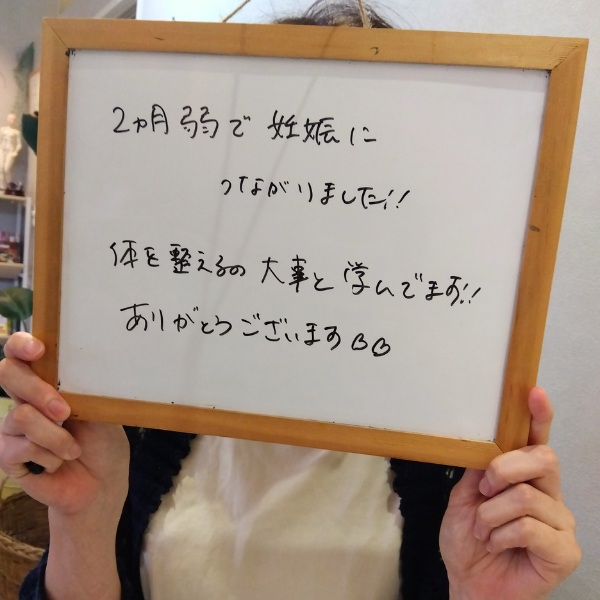 2ヵ月弱で 妊娠に
つながりました!!
体を整えるの 大事と 学んでます!!
ありがとうございます